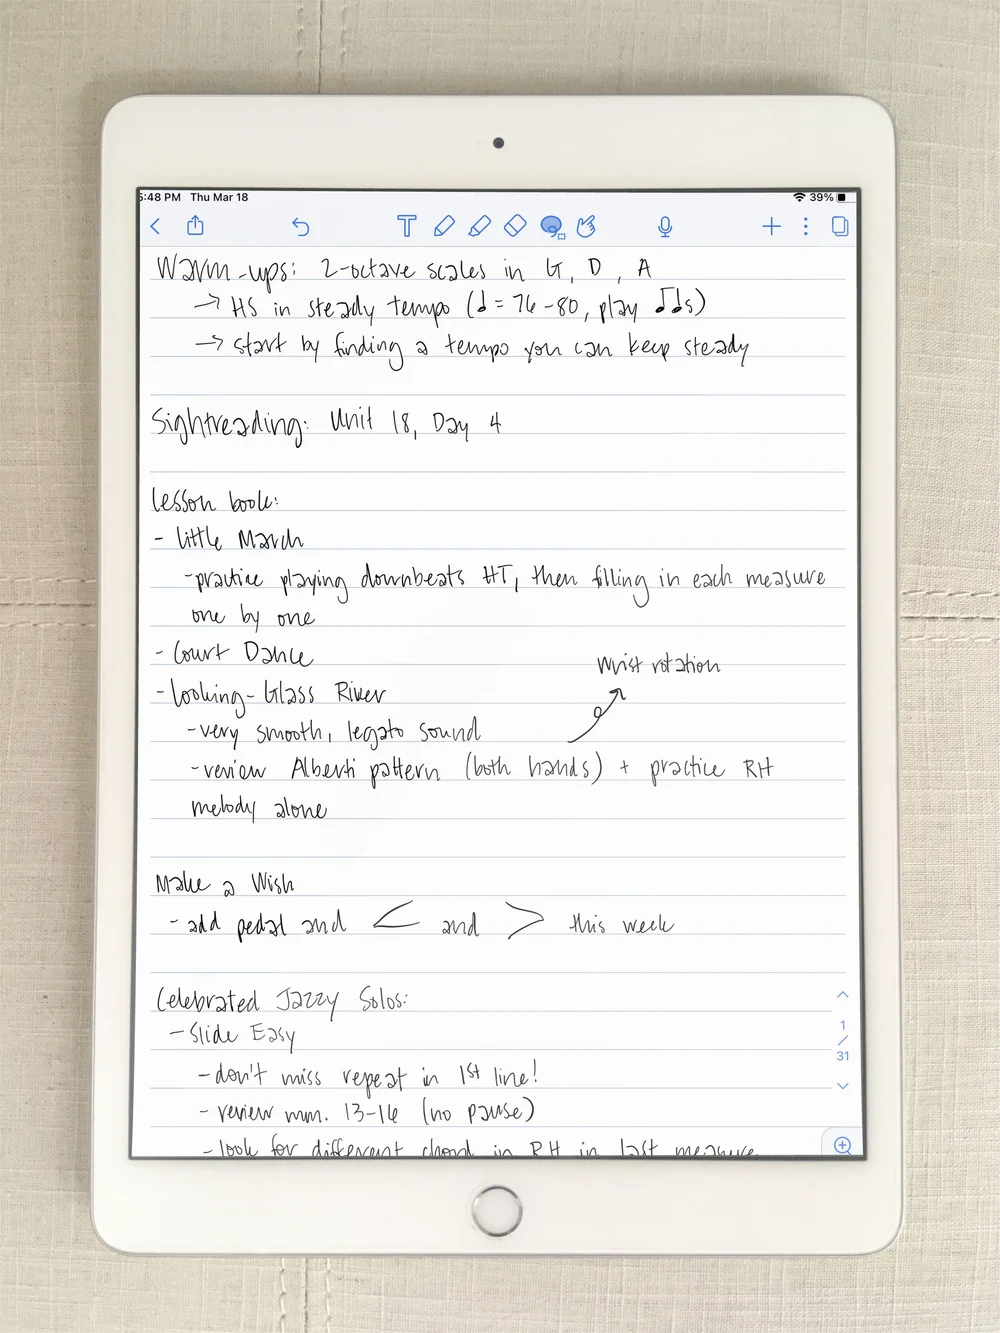 5:48 PM Thu Mar 18
39%
T
Warm-ups: 2-octave scales in G, D, A
→ HS in steady tempo (♩ = 76-80, play ♫s)
→ start by finding a tempo you can keep steady
Sightreading: Unit 18, Day 4
Lesson book:
- Little March
- practice playing downbeats HT, then filling in each measure
one by one
- Court Dance
wrist rotation
- Looking-Glass River
- very smooth, legato sound
- review Alberti pattern (both hands) + practice RH
melody alone
Make a Wish
- add pedal and < and > this week
Celebrated Jazzy Solos:
- Slide Easy
- don't miss repeat in 1st line!
- review mm. 13-16 (no pause)
- look for different chord in RH in last measure
1
/
31